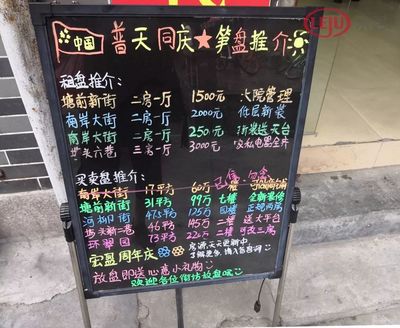 LEJU
中国 普天同庆★笋盘推介
租盘推介:
塘前新街 二房一厅 1500元 大院管理
南岸大街 二房一厅 2000元 低层新装
南岸大街 二房一厅 250元 新装送天台
三房一厅 3000元 全齐
买卖盘推介:
南岸大街 17平方 60万 楼
塘前新街 31平方 99万 七楼 全新装修
河柳街 47.5平方 125万 四楼 正规两房
新二巷 46平方 145万 二楼 送大平台
环翠园 73平方 220万 二楼 可改三房
宏盈周年庆 房源天天更新中
了解更多,请入咨询
放盘即送心意小礼物
欢迎各位街坊放盘哦